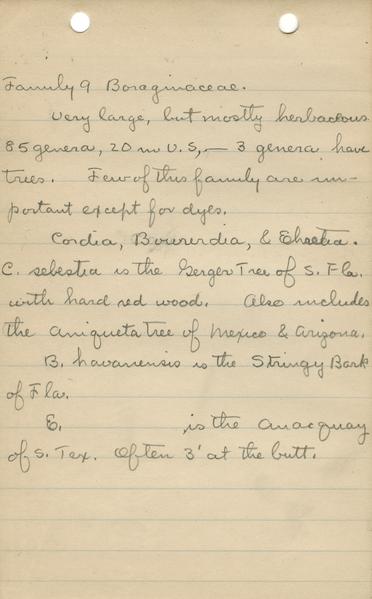 Family 9 Boraginaceae.
Very large, but mostly herbaceous
85 genera, 20 in U.S, — 3 genera have
trees. Few of this family are im-
portant except for dyes.
Cordia, Bourerdia, & Ehretia.
C. sebestia is the Geiger Tree of S. Fla.
with hard red wood. Also includes
the aniqueta tree of Mexico & Arizona.
B. havanensis is the Stringy Bark
of Fla.
E. , is the anacquay
of S. Tex. Often 3' at the butt.